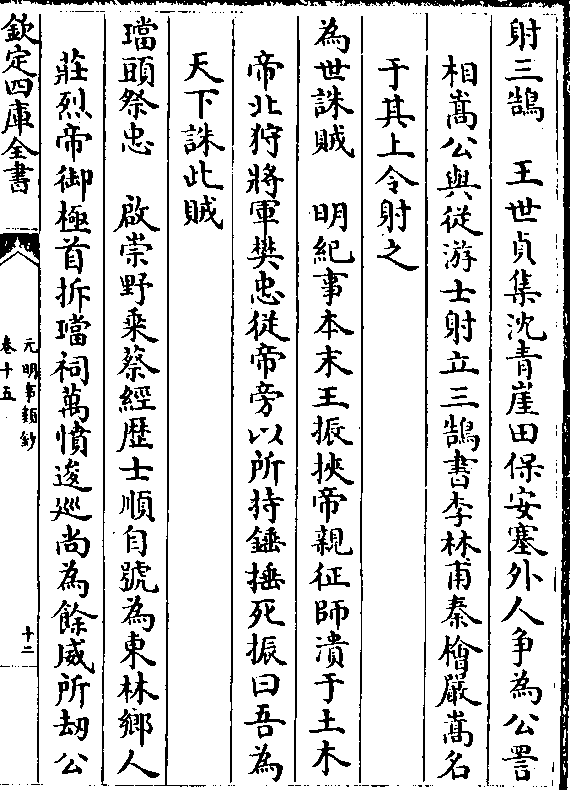 射三鵠　王世貞集沈青崖田保安塞外人爭為公詈
相嵩公與從游士射立三鵠書李林甫秦檜嚴嵩名
于其上令射之
為世誅賊　明紀事本末王振挾帝親征師潰于土木
帝北狩將軍樊忠從帝旁以所持錘捶死振曰吾為
天下誅此賊
璫頭祭忠　啟崇野乗蔡經歴士順自號為東林鄉人
莊烈帝御極首拆璫祠萬憤逡廵尚為餘威所刼公
欽定四庫全書
元明事類鈔
卷十五
十二